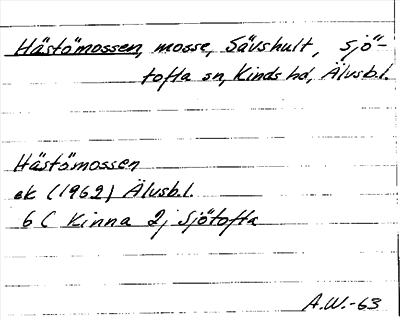 Hästömossen, mosse, Sävshult, Sjö-
tofta sn, Kinds hd, Älvsb.l.
Hästömossen
ek (1962) Älvsb.l.
6 C Kinna 2j Sjötofta
A.W.-63